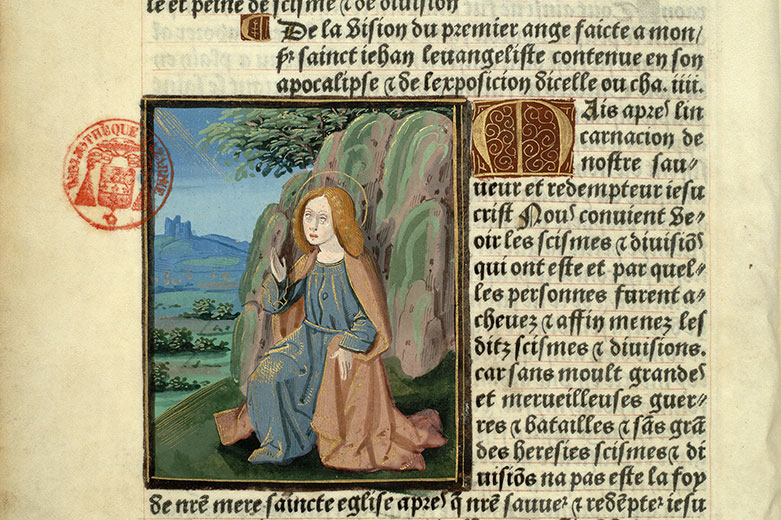 le et peine de scisme ⁊ de division
De la vision du premier ange faicte a mon/
sr sainct iehan levangeliste contenue en son
apocalipse ⁊ de lexposicion dicelle ou cha. iiii.
Mais apres lin
carnacion de
nostre sau/
ueur et redempteur iesu
crist Nous convient ve/
oir les scismes ⁊ divisiõs
qui ont este et par quel/
les personnes furent a/
chevez ⁊ affin menez les
ditz scismes ⁊ divisions.
car sans moult grandes
et merveilleuses guer/
res ⁊ batailles ⁊ sãs grã
des heresies scismes ⁊ di
visiõs na pas este la foy
de nr̃e mere saincte eglise apres q̃ nr̃e sauver ⁊ redẽpter iesu
BIBLIOTHEQUE